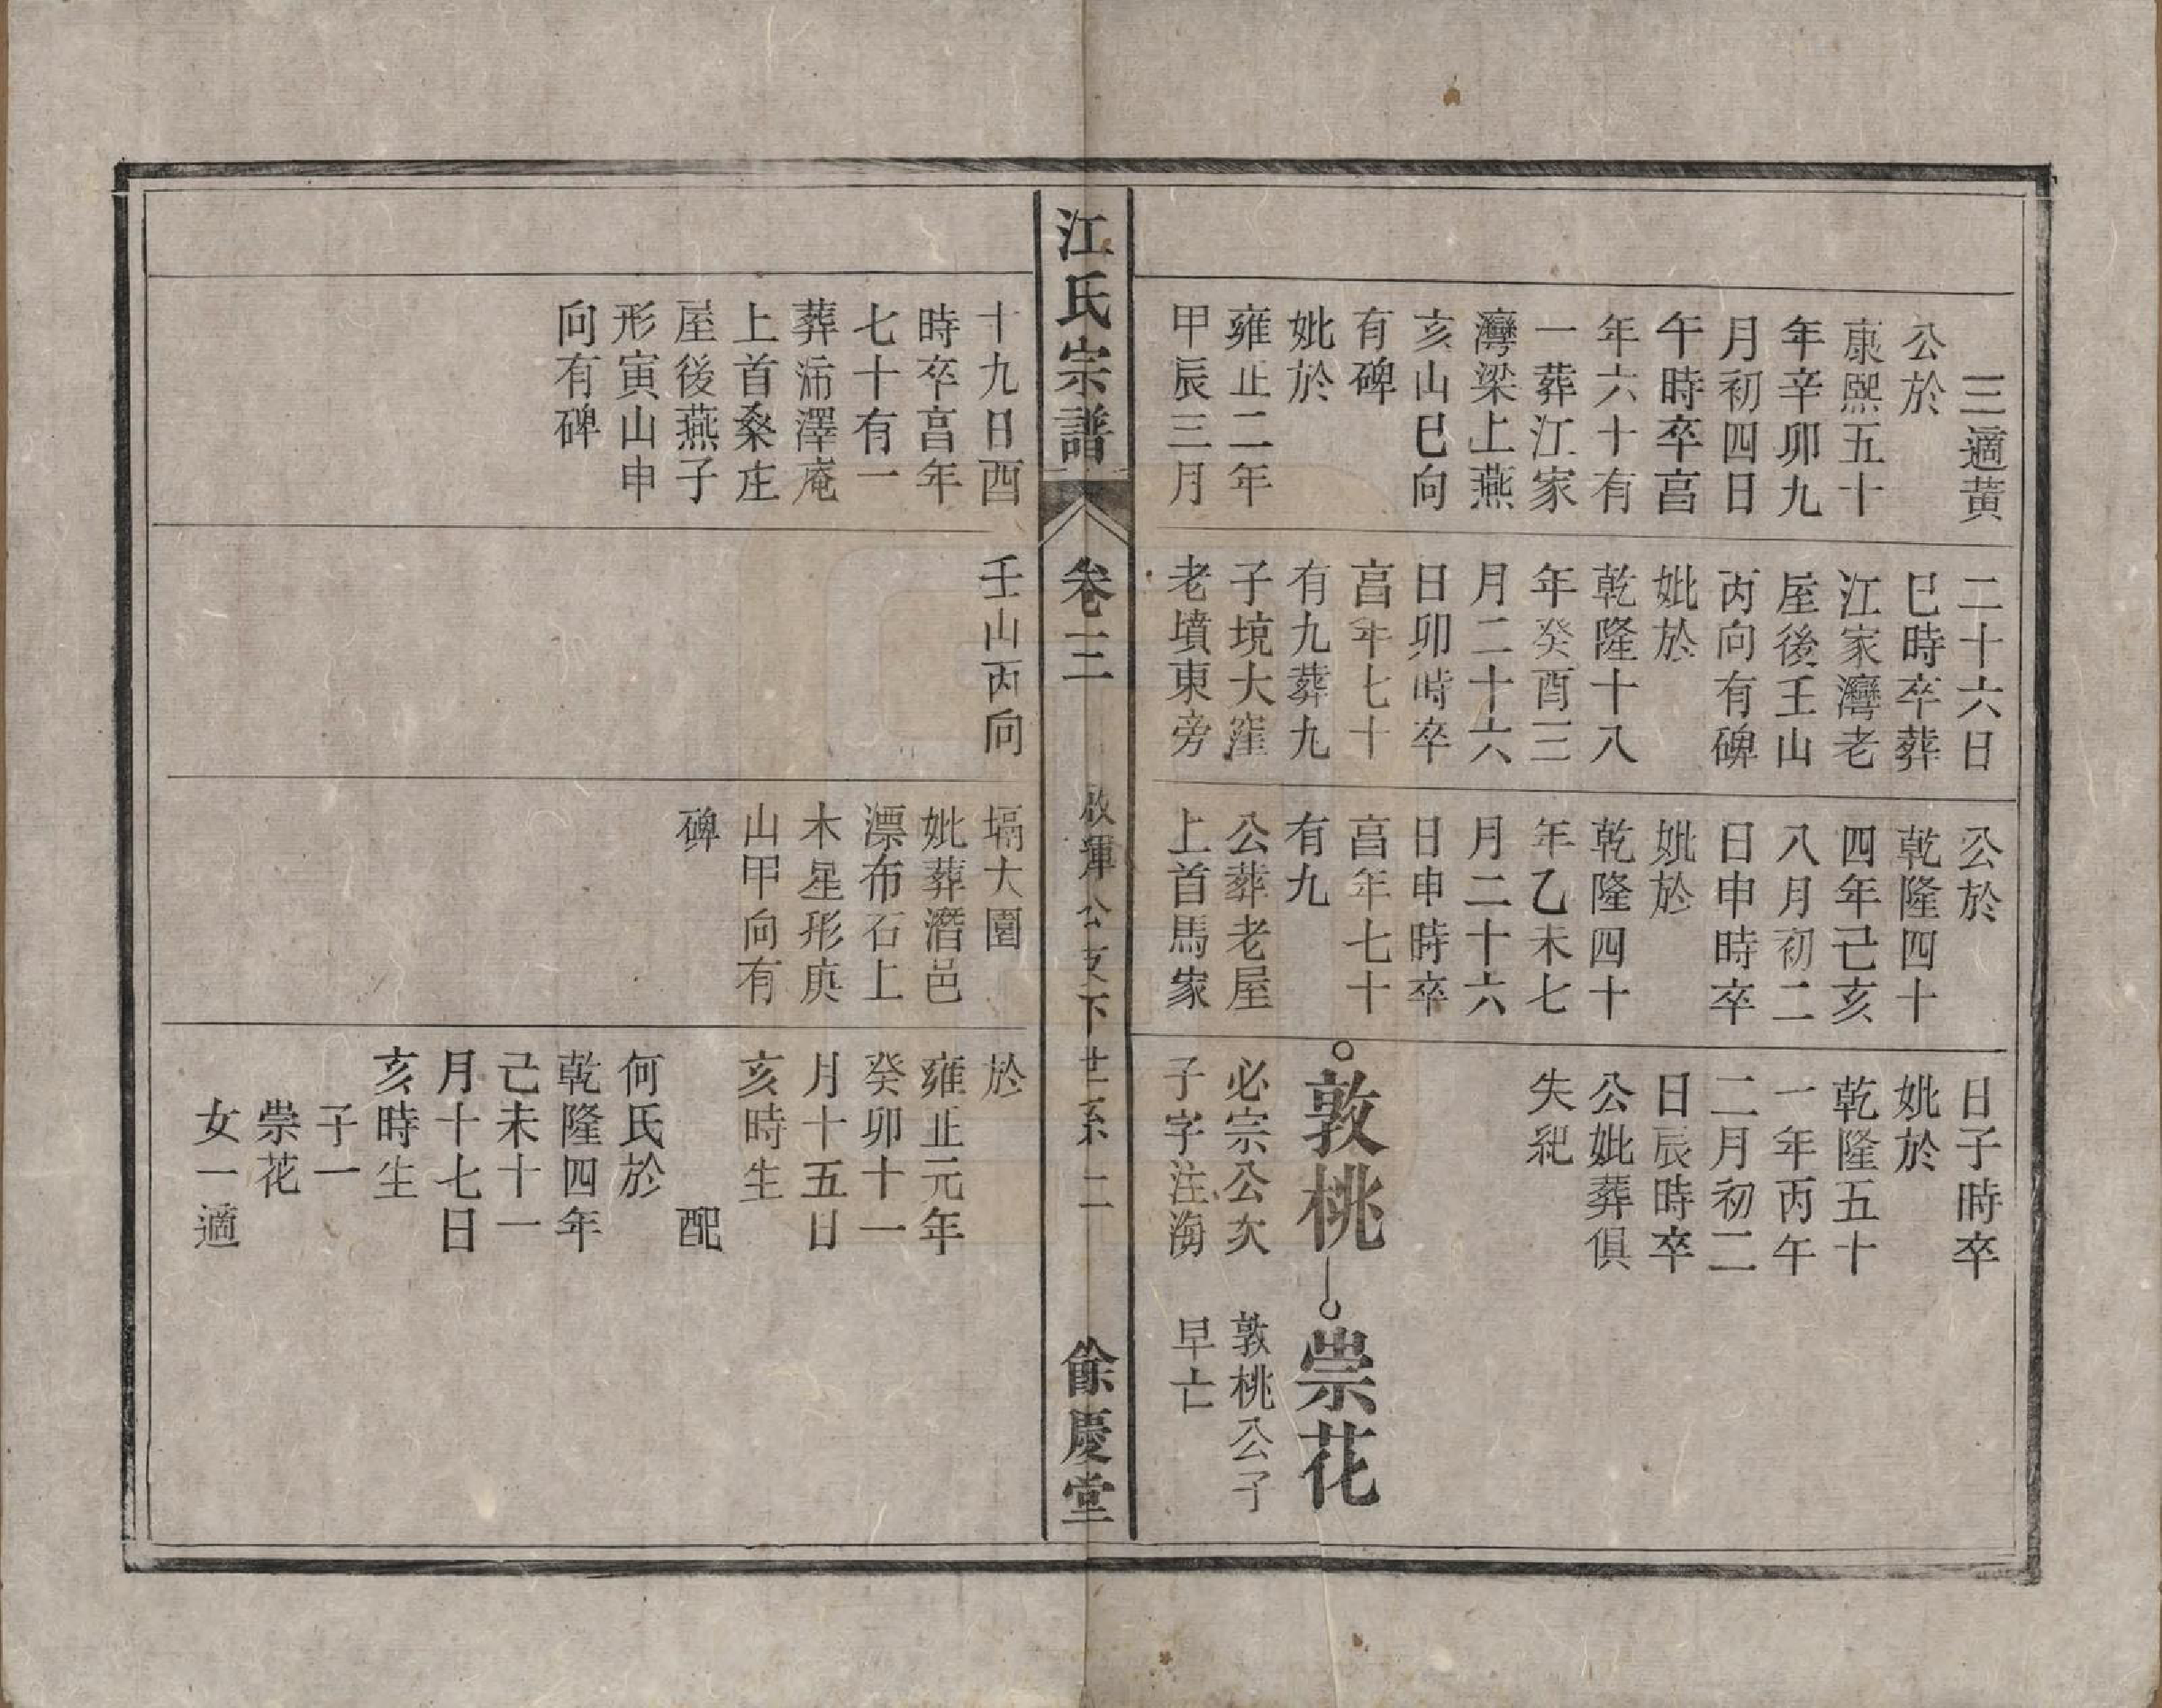 三適黄
公於
康熙五十
年辛卯九
月初四日
午時卒亯
年六十有
一葬江家
灣梁上燕
亥山巳向
有碑
妣於
雍正二年
甲辰三月
二十六日
巳時卒葬
江家灣老
屋後壬山
丙向有碑
妣於
乾隆十八
年癸酉三
月二十六
日卯時卒
亯年七十
有九葬九
子境大窪
老墳東旁
公於
乾隆四十
四年己亥
八月初二
日申時卒
妣於
乾隆四十
年乙未七
月二十六
日申時卒
亯年七十
有九
公葬老屋
上首馬家
日子時卒
妣於
乾隆五十
一年丙午
二月初二
日辰時卒
公妣葬俱
失紀
敦桃
必宗公次
子字注海
崇花
敦桃公子
早亡
江氏宗譜
卷三
啟運公支下世系
二
餘慶堂
十九日酉
時卒亯年
七十有一
葬㳍澤庵
上首桑庄
屋後燕子
形寅山申
向有碑
壬山丙向
塥大園
妣葬潛邑
漂布石上
木星形庚
山甲向有
碑
於
雍正元年
癸卯十一
月十五日
亥時生
配
何氏於
乾隆四年
己未十一
月十七日
亥時生
子一
崇花
女一適